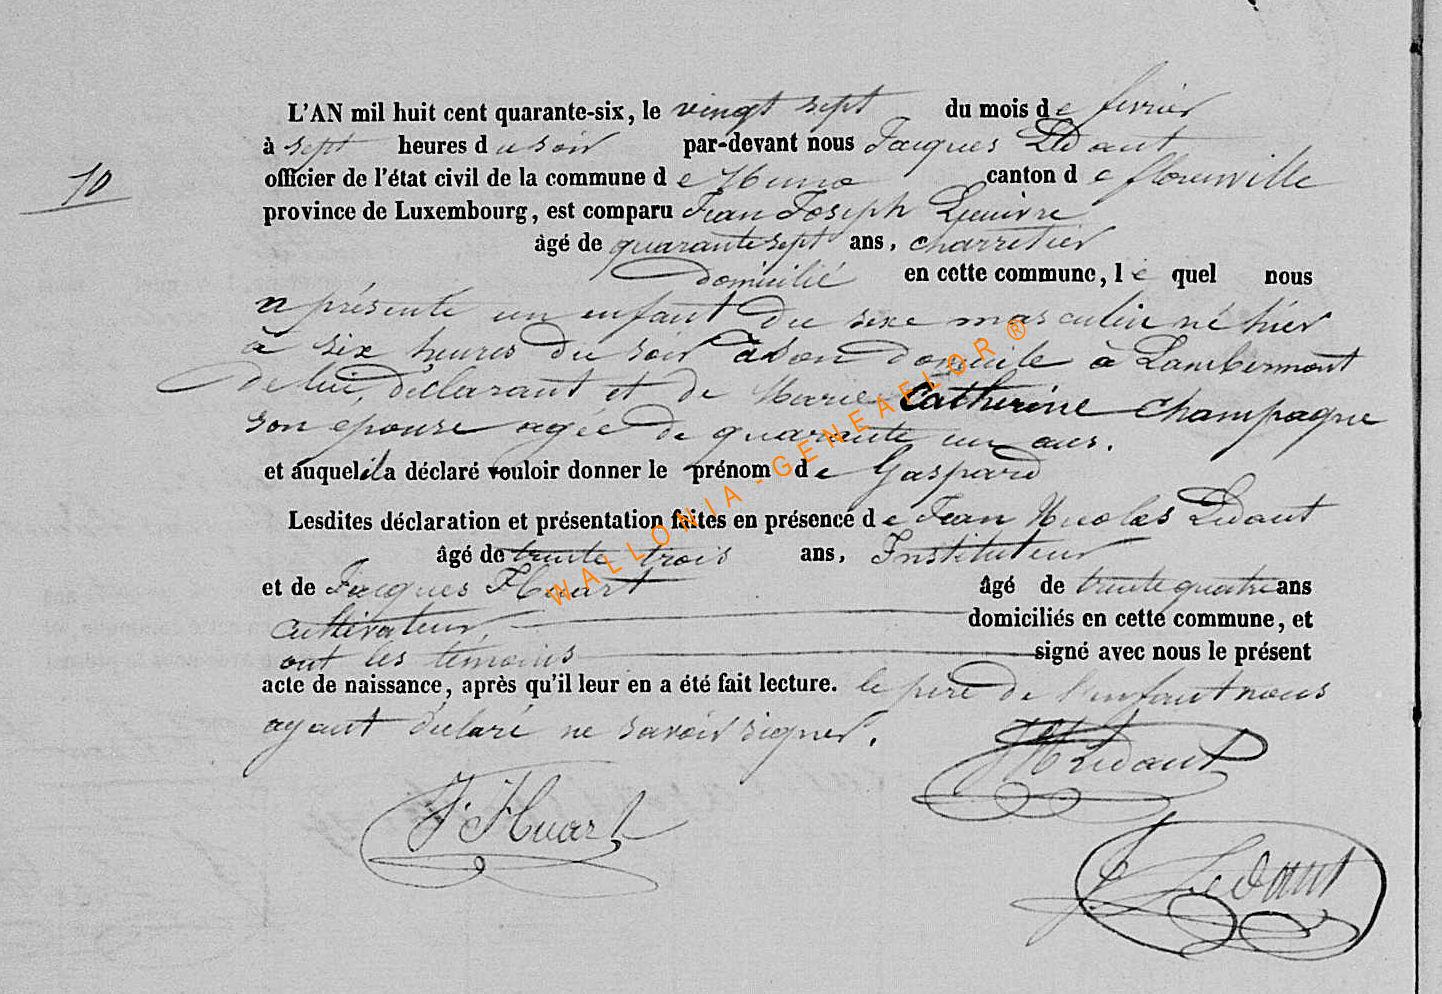 L'AN mil huit cent quarante-six, le vingt sept du mois de fevrier
à sept heures du soir par-devant nous Jacques Ledant
10
officier de l'état civil de la commune de Muno canton de florenville
province de Luxembourg, est comparu Jean Joseph
âgé de quarante sept ans, charretier
domicilié en cette commune, lequel nous
a présenté un enfant du sexe masculin né hier
à six heures du soir à son domicile à Lambermont
de lui, déclarant et de Marie Catherine Champagne
son epouse agée de quarante un ans.
et auquel il a déclaré vouloir donner le prénom de Gaspard
Lesdites déclaration et présentation faites en présence de Jean Nicolas Ledant
âgé de trente trois ans, Instituteur
et de Jacques Huart âgé de trente quatre ans
cultivateur, domiciliés en cette commune, et
ont les témoins signé avec nous le présent
acte de naissance, après qu'il leur en a été fait lecture. le père de l'enfant nous
ayant déclaré ne savoir signer.
Ledant
J. Huart
J Ledant
WALLONIA - GENEAFLOR ®